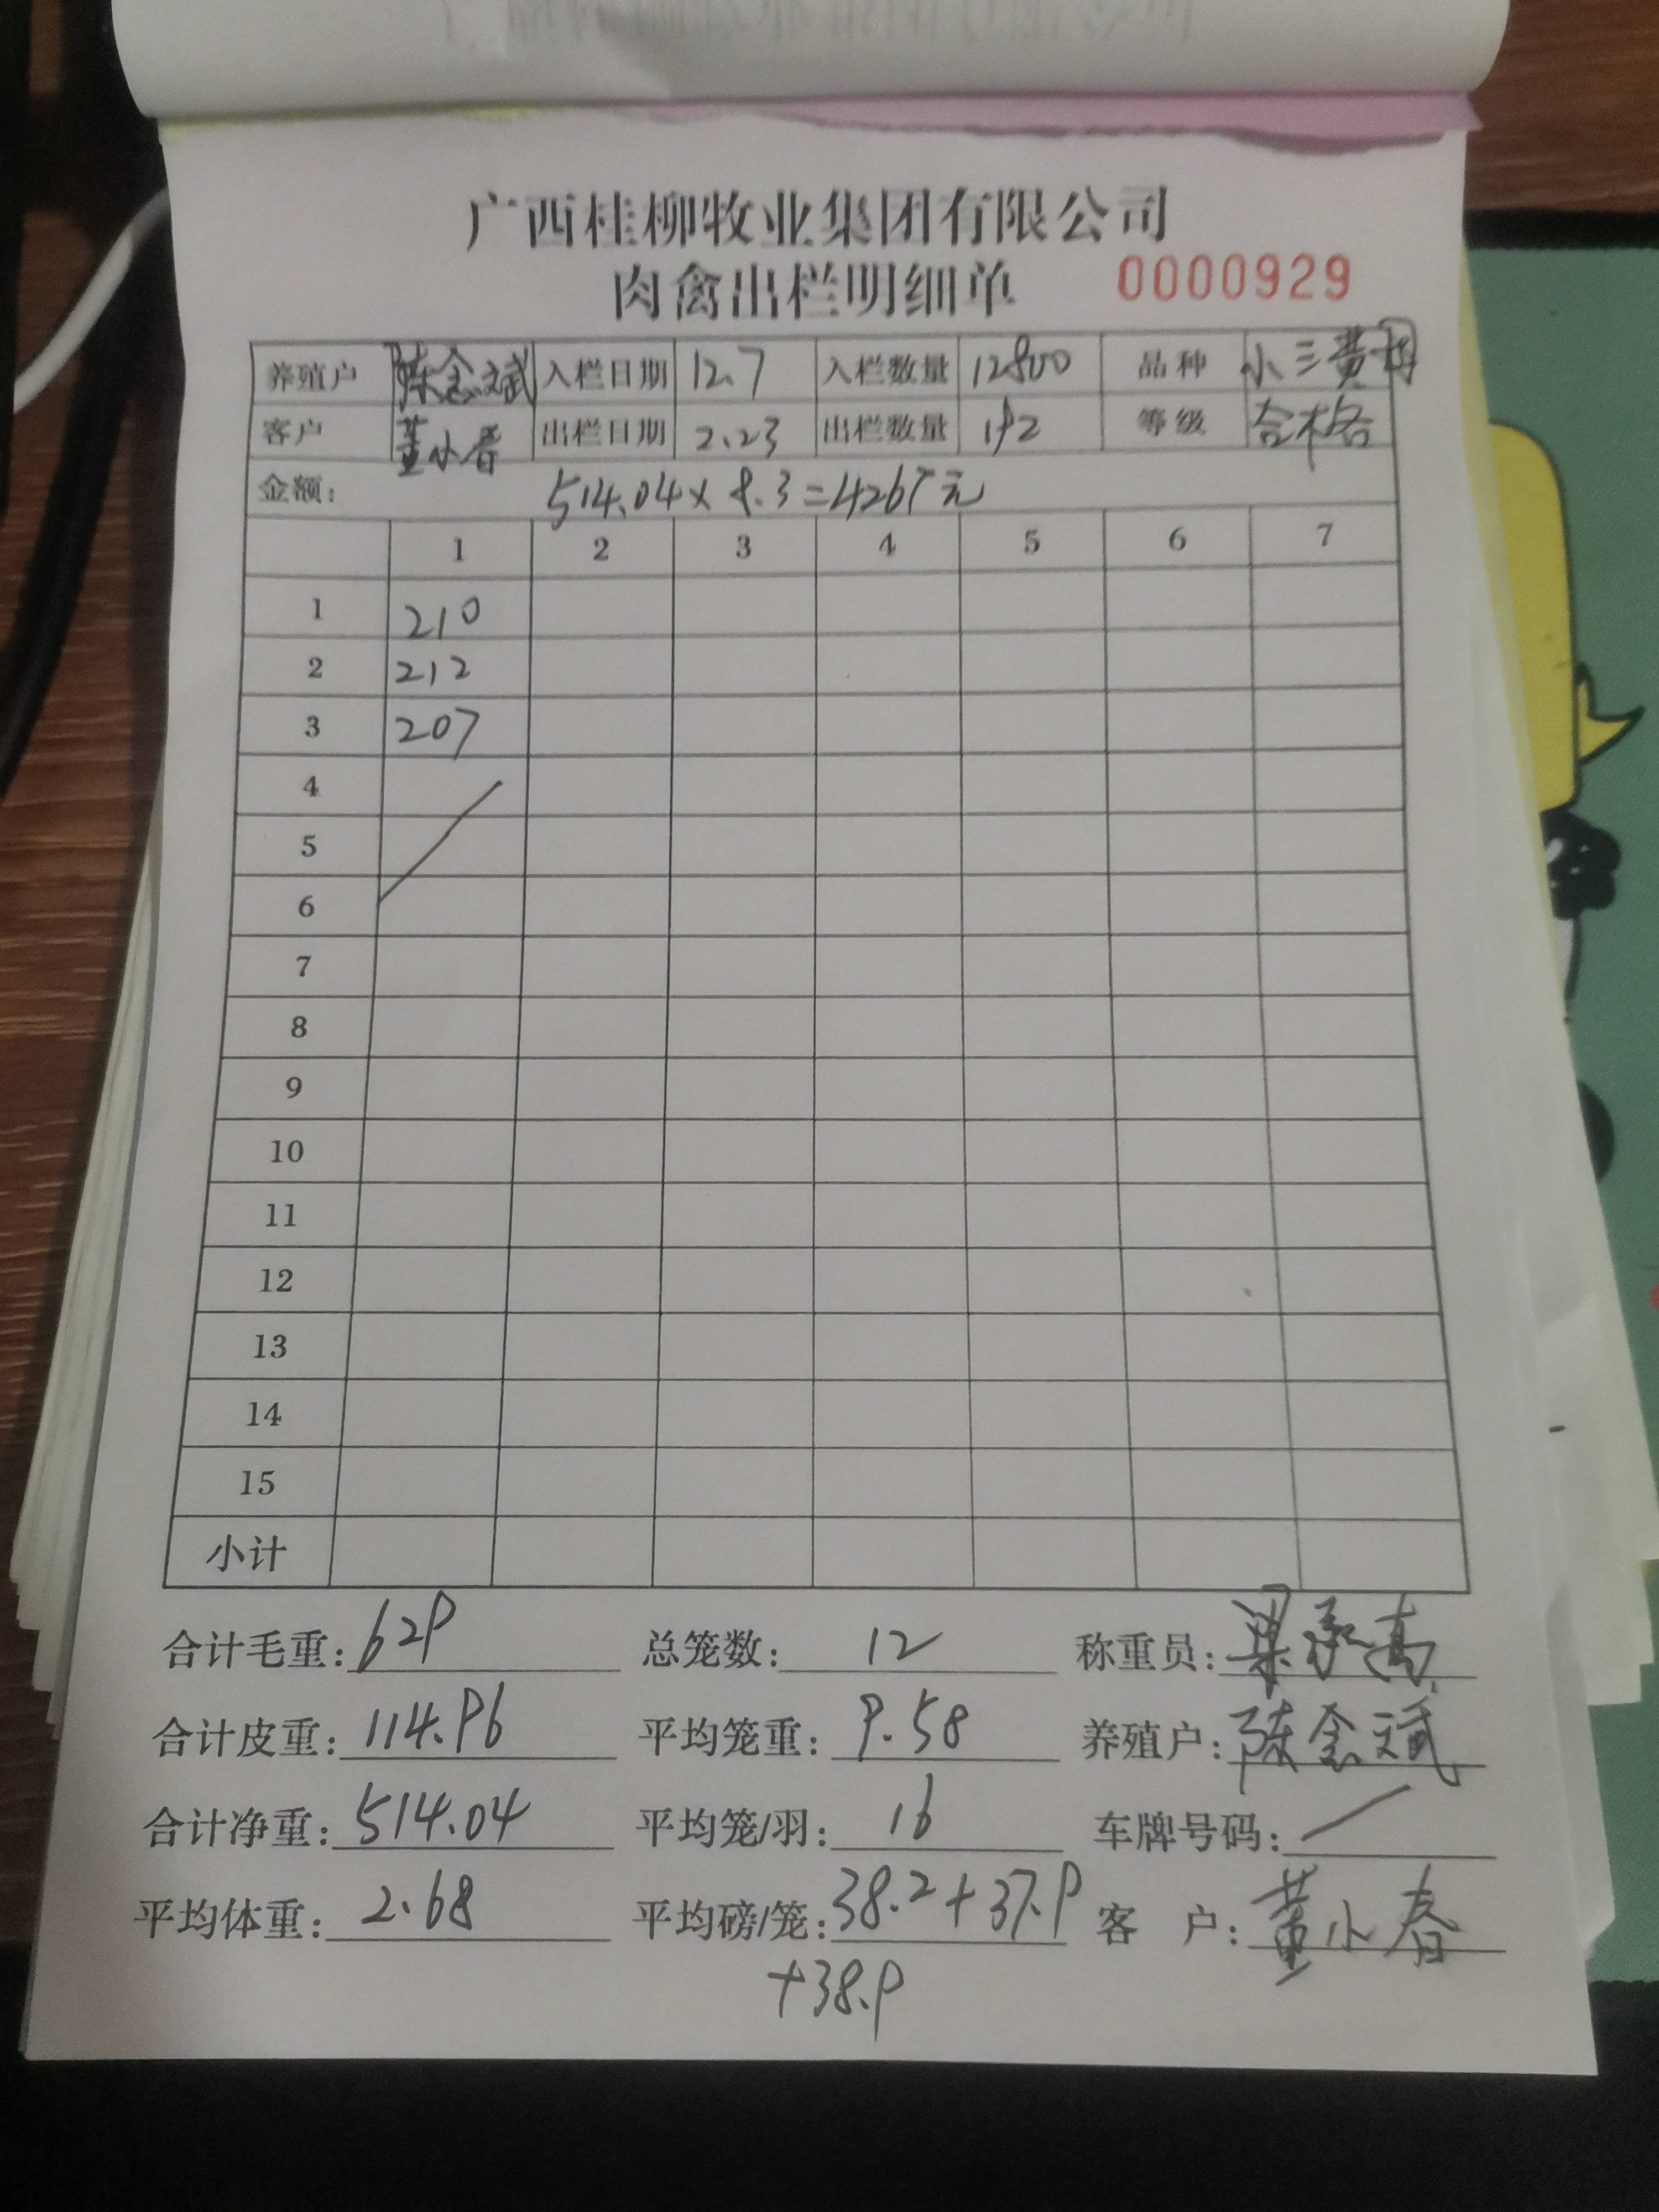 广西桂柳牧业集团有限公司
肉禽出栏明细单 0000929
养殖户 陈念斌 入栏日期 12.7 入栏数量 12800 品种 小三黄
客户 董小春 出栏日期 2.23 出栏数量 192 等级 合格
金额: 514.04×8.3=4267元
1 2 3 4 5 6 7
1 210
2 212
3 207
4
5
6
7
8
9
10
11
12
13
14
15
小计
合计毛重: 629 总笼数: 12 称重员: 梁承高
合计皮重: 114.96 平均笼重: 9.58 养殖户: 陈念斌
合计净重: 514.04 平均笼/羽: 16 车牌号码: /
平均体重: 2.68 平均磅/笼: 38.2+37.9 客 户: 董小春
+38.9